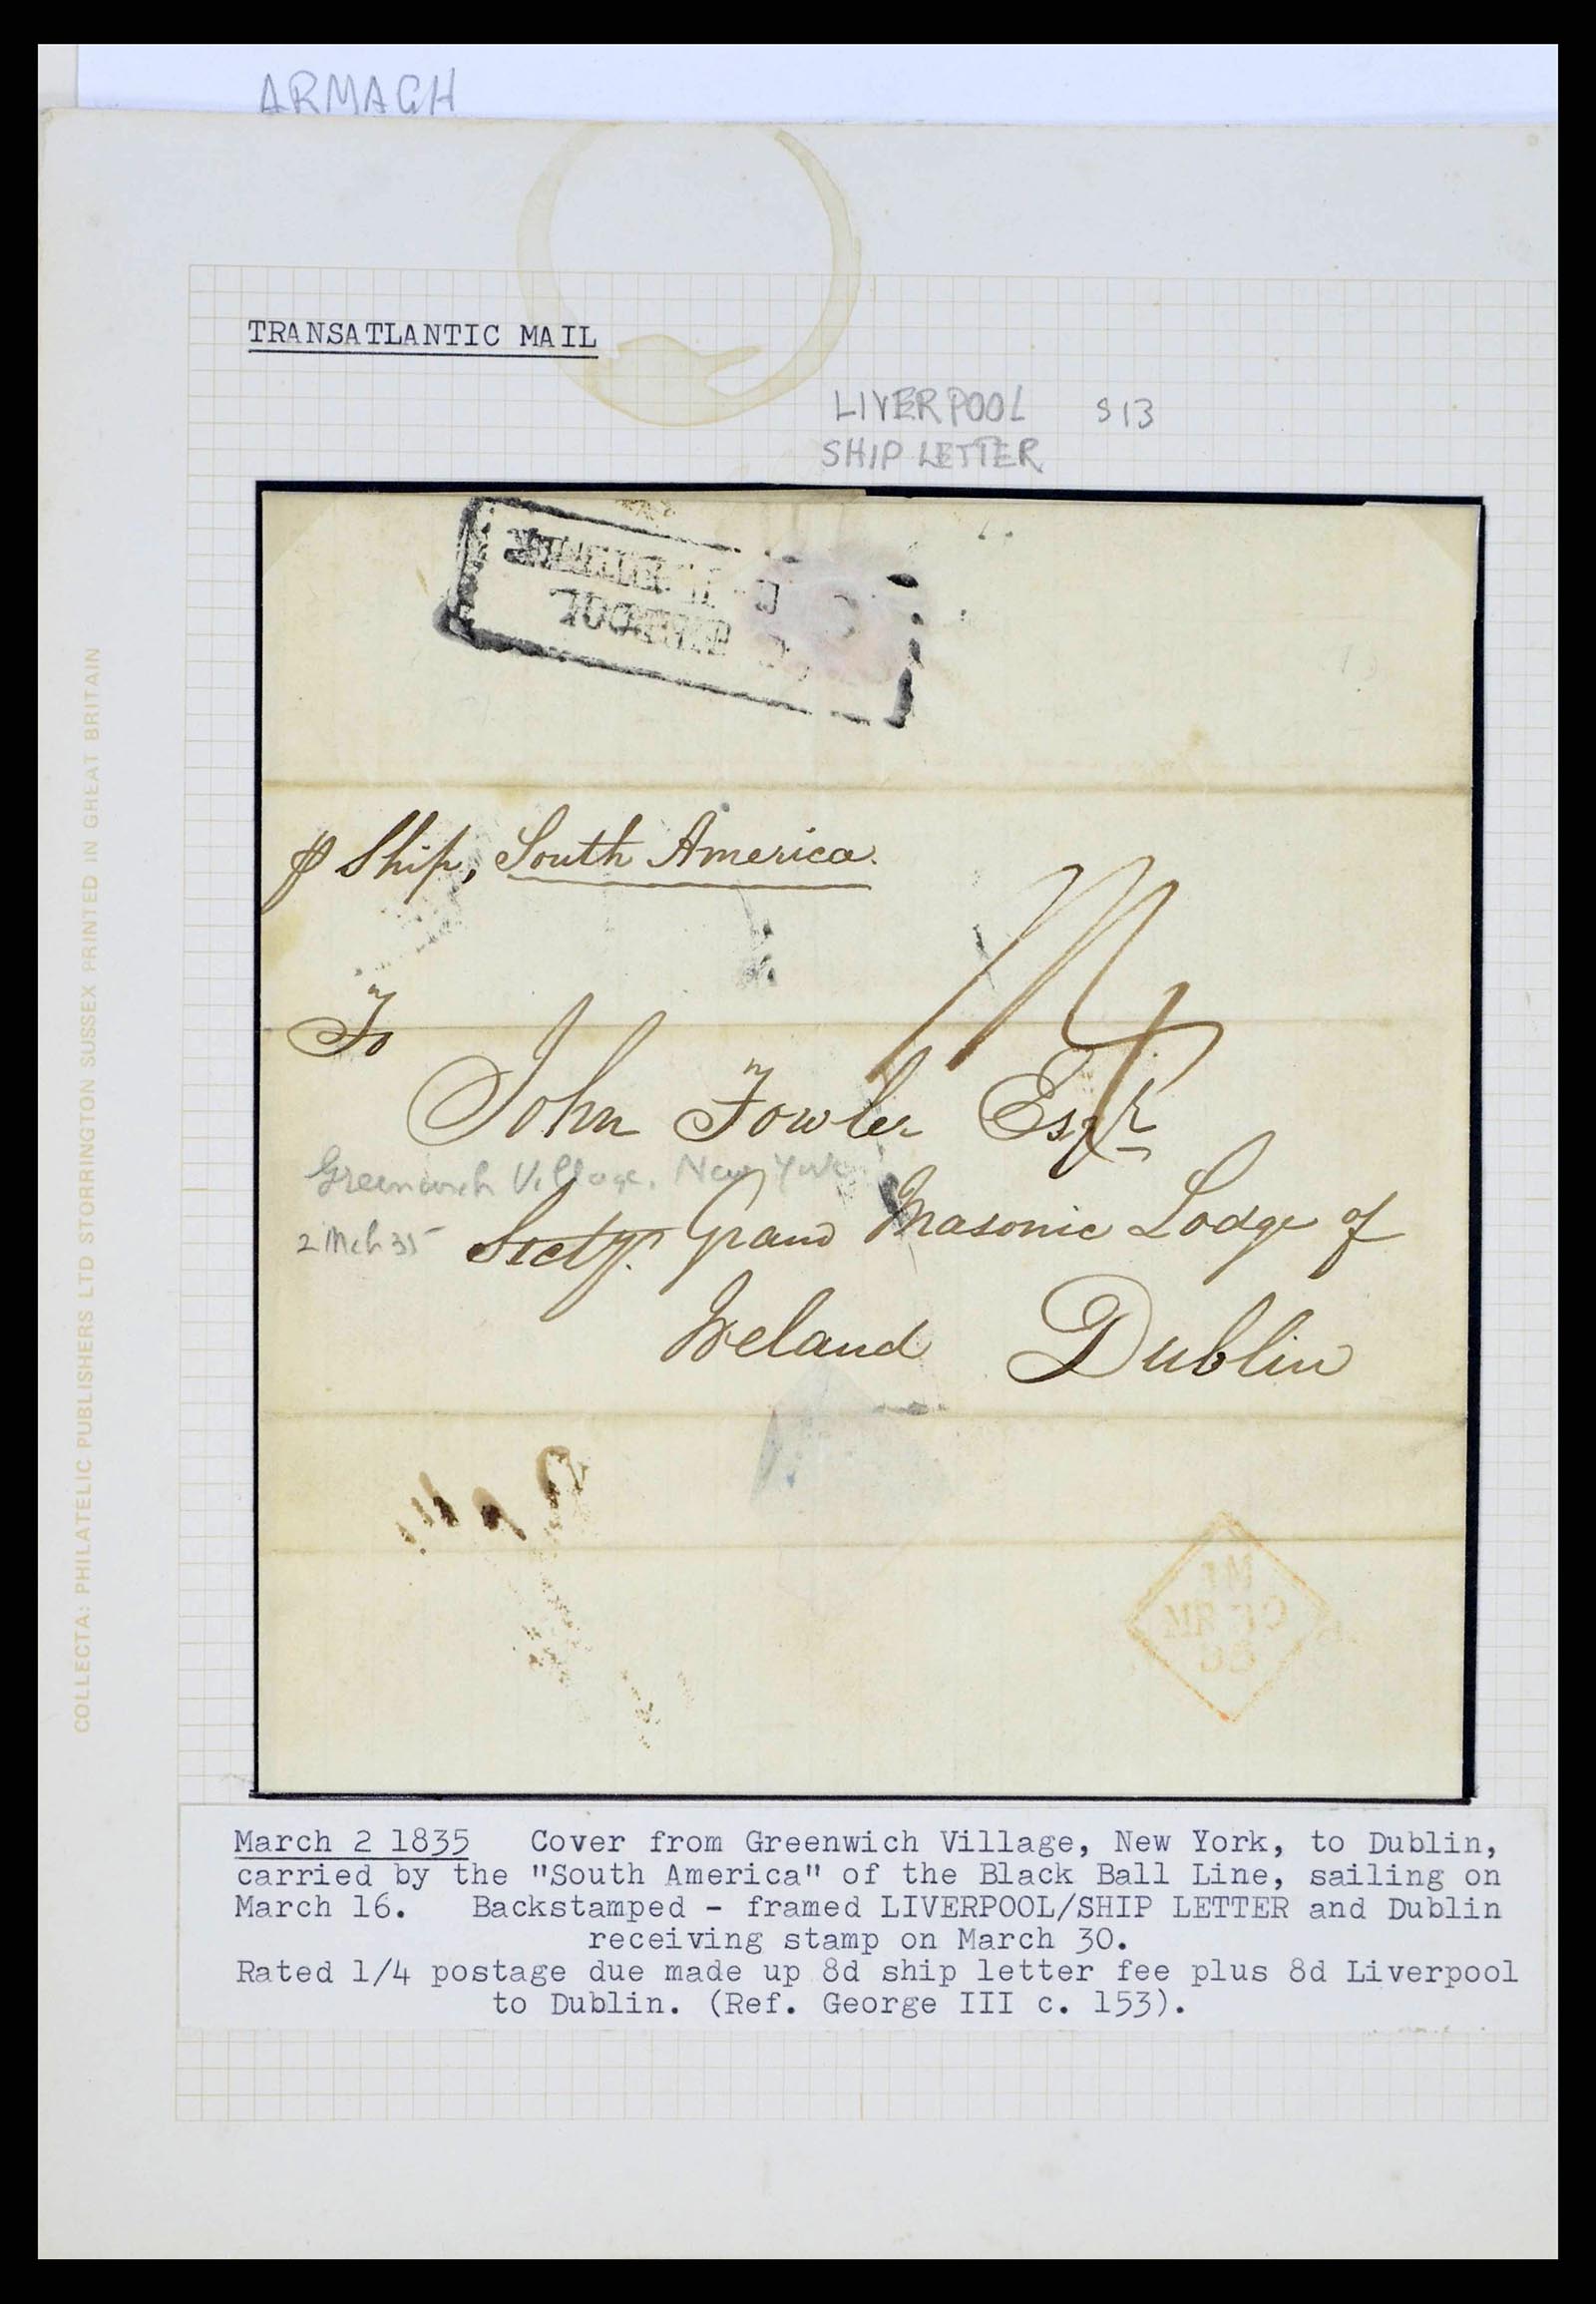 ARMAGH
TRANSATLANTIC MAIL
LIVERPOOL S13
SHIP LETTER
LIVERPOOL
SHIP LETTER
⅌ Ship, South America.
To
1/4
John Fowler Esqr
Greenwich Village, New York
2 Mch 35
Secty. Grand Masonic Lodge of
Ireland Dublin
March 2 1835 Cover from Greenwich Village, New York, to Dublin,
carried by the "South America" of the Black Ball Line, sailing on
March 16. Backstamped - framed LIVERPOOL/SHIP LETTER and Dublin
receiving stamp on March 30.
Rated 1/4 postage due made up 8d ship letter fee plus 8d Liverpool
to Dublin. (Ref. George III c. 153).
COLLECTA: PHILATELIC PUBLISHERS LTD STORRINGTON SUSSEX PRINTED IN GREAT BRITAIN